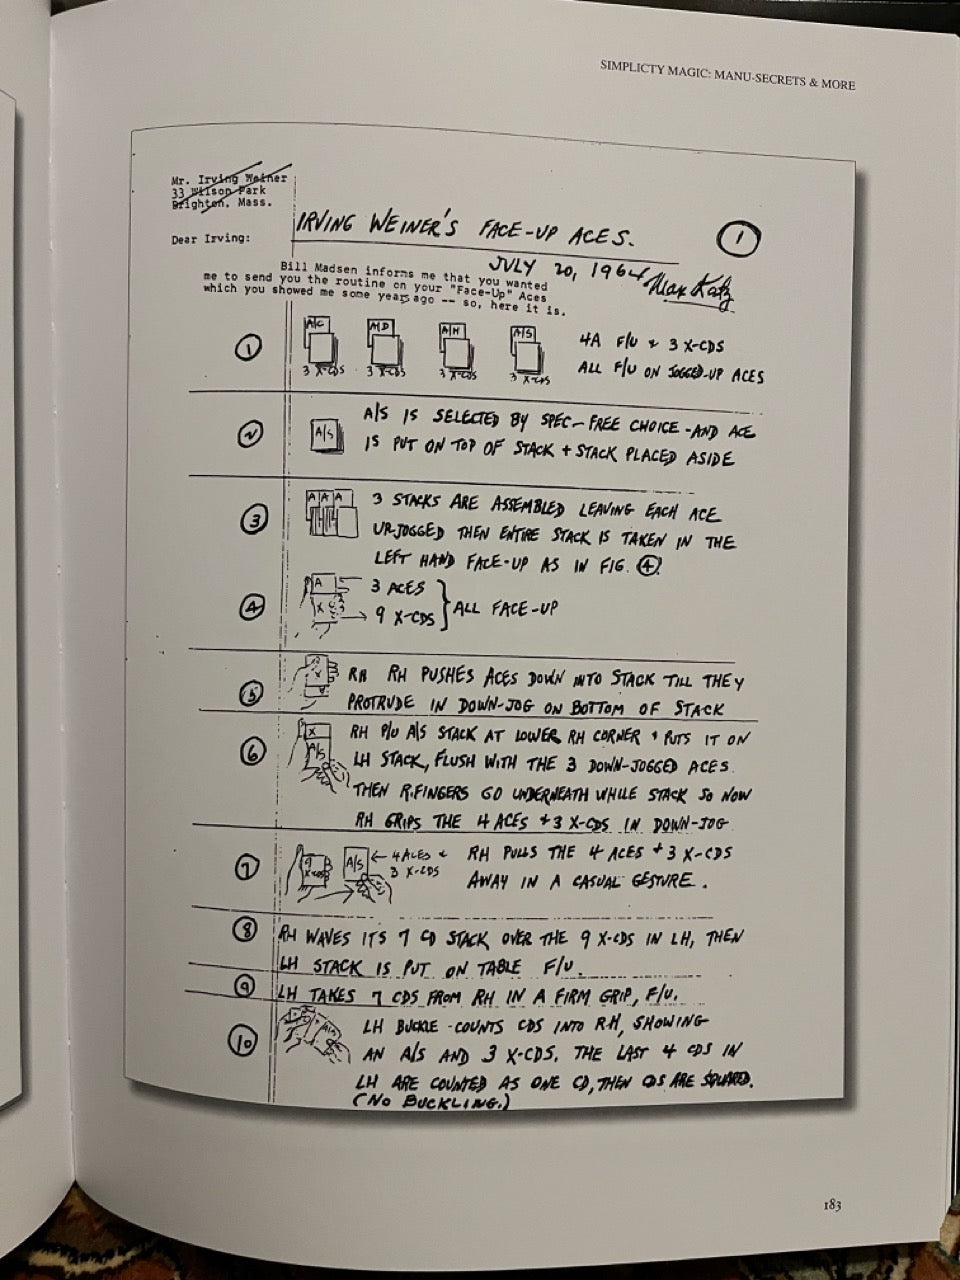 SIMPLICTY MAGIC: MANU-SECRETS & MORE
Mr. Irving Weiner
33 Wilson Park
Brighton, Mass.
IRVING WEINER'S FACE-UP ACES.
1
Dear Irving:
JULY 20, 1964
Max Katz
Bill Madsen informs me that you wanted
me to send you the routine on your "Face-Up" Aces
which you showed me some years ago -- so, here it is.
1
A/C A/D A/H A/S
3 X-CDS 3 X-CDS 3 X-CDS 3 X-CDS
4A F/U & 3 X-CDS
ALL F/U ON JOGGED-UP ACES
2
A/S
A/S IS SELECTED BY SPEC - FREE CHOICE - AND ACE
IS PUT ON TOP OF STACK + STACK PLACED ASIDE
3
A A A
3 STACKS ARE ASSEMBLED LEAVING EACH ACE
UPJOGGED THEN ENTIRE STACK IS TAKEN IN THE
LEFT HAND FACE-UP AS IN FIG. 4
4
A
X
3 ACES
9 X-CDS
ALL FACE-UP
5
X
RH PUSHES ACES DOWN INTO STACK TILL THEY
PROTRUDE IN DOWN-JOG ON BOTTOM OF STACK
6
X
A/S
RH P/U A/S STACK AT LOWER RH CORNER & PUTS IT ON
LH STACK, FLUSH WITH THE 3 DOWN-JOGGED ACES.
THEN R.FINGERS GO UNDERNEATH WHILE STACK SO NOW
RH GRIPS THE 4 ACES + 3 X-CDS IN DOWN-JOG
7
9 X-CDS
A/S
4 ACES &
3 X-CDS
RH PULLS THE 4 ACES + 3 X-CDS
AWAY IN A CASUAL GESTURE.
8
RH WAVES ITS 7 CD STACK OVER THE 9 X-CDS IN LH, THEN
LH STACK IS PUT ON TABLE F/U.
9
LH TAKES 7 CDS FROM RH IN A FIRM GRIP, F/U.
10
A/S
LH BUCKLE-COUNTS CDS INTO RH, SHOWING
AN A/S AND 3 X-CDS. THE LAST 4 CDS IN
LH ARE COUNTED AS ONE CD, THEN CDS ARE SQUARED.
(NO BUCKLING.)
183